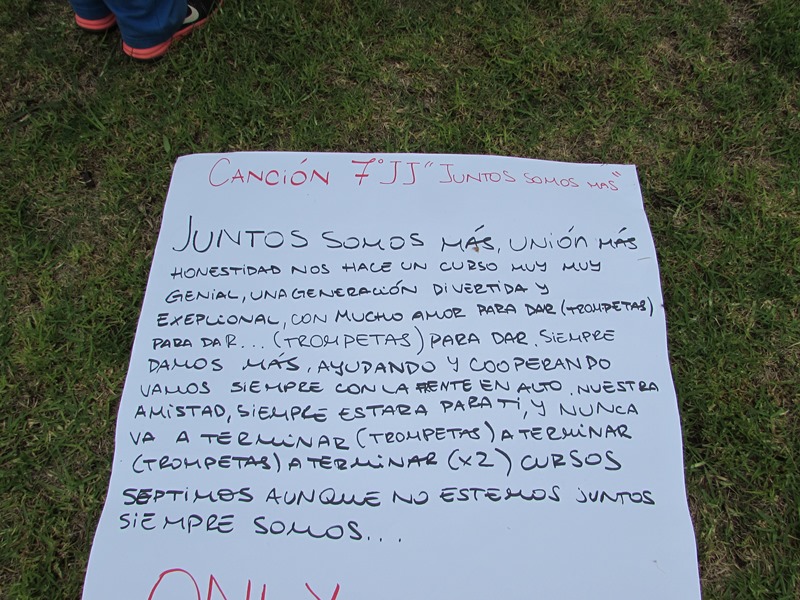 CANCIÓN 7°JJ "JUNTOS SOMOS MAS"
JUNTOS SOMOS MÁS, UNIÓN MÁS
HONESTIDAD NOS HACE UN CURSO MUY MUY
GENIAL, UNA GENERACIÓN DIVERTIDA Y
EXEPLIONAL, CON MUCHO AMOR PARA DAR (TROMPETAS)
PARA DAR... (TROMPETAS) PARA DAR. SIEMPRE
DAMOS MÁS, AYUDANDO Y COOPERANDO
VAMOS SIEMPRE CON LA FRENTE EN ALTO. NUESTRA
AMISTAD, SIEMPRE ESTARA PARA TI, Y NUNCA
VA A TERMINAR (TROMPETAS) A TERMINAR
(TROMPETAS) A TERMINAR (X2) CURSOS
SEPTIMOS AUNQUE NO ESTEMOS JUNTOS
SIEMPRE SOMOS...
ONLY